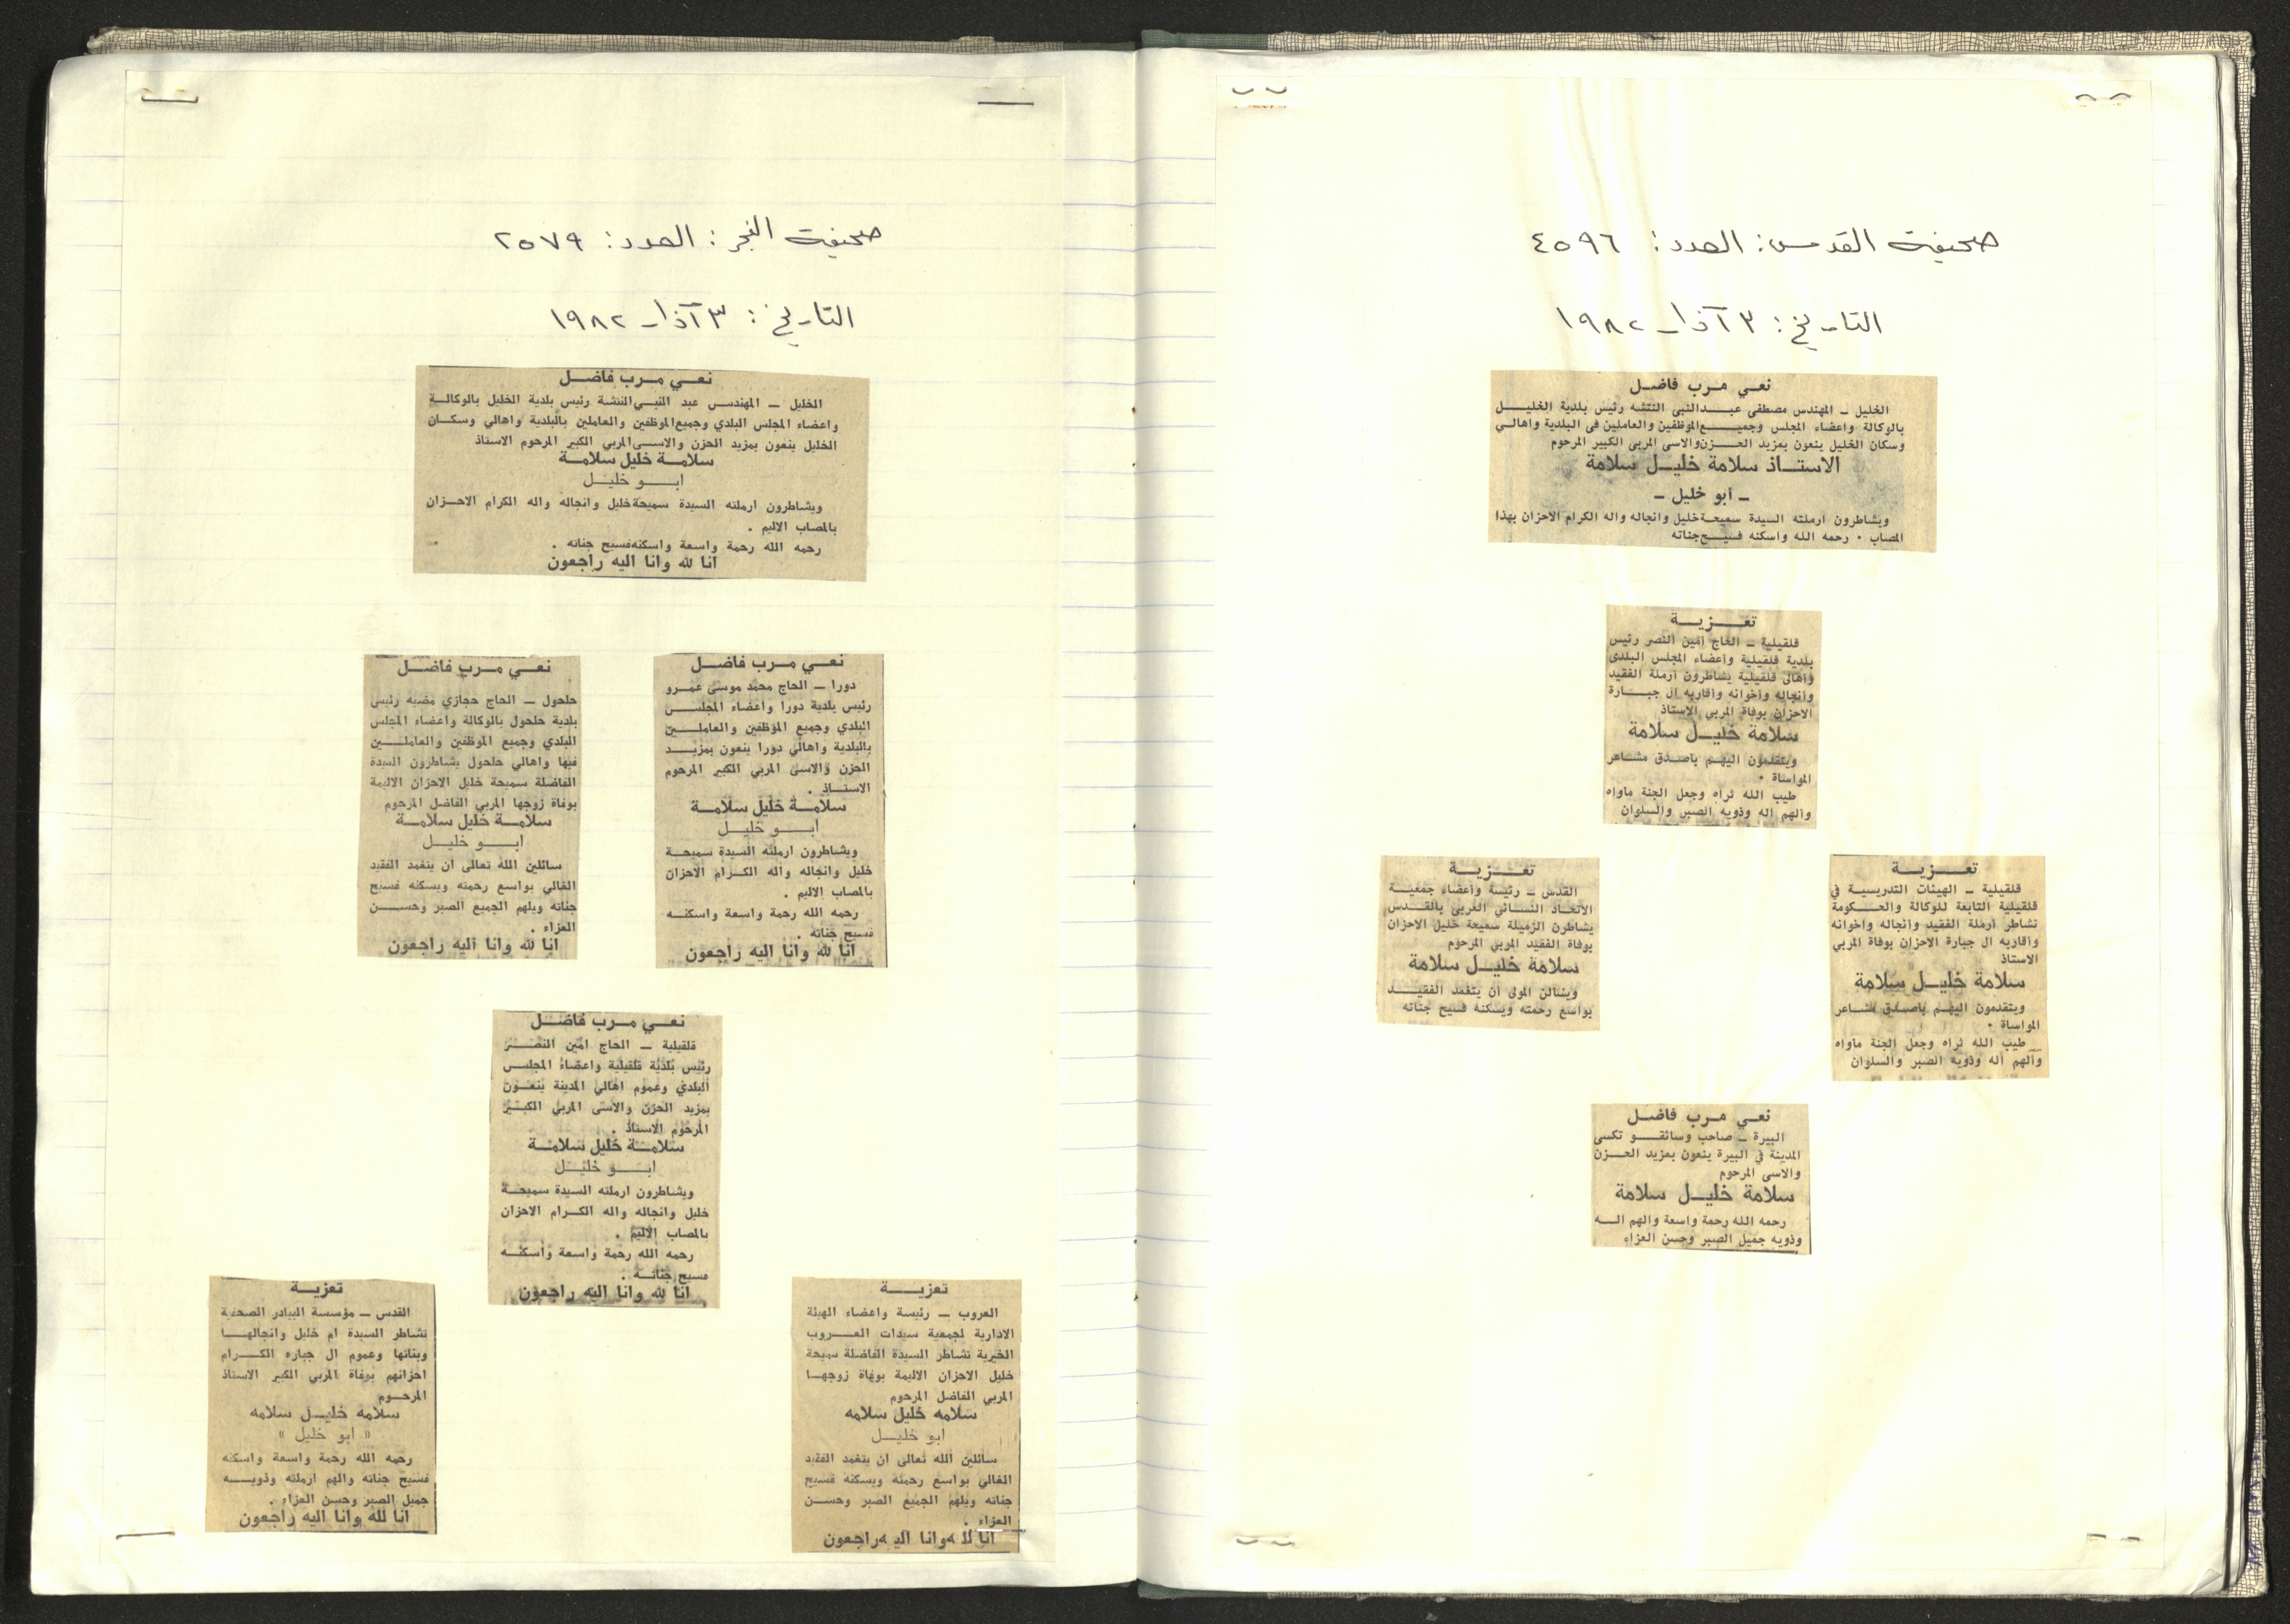 صحيفة القدس: العدد: ٤٥٩٦
التاريخ: ٣ آذار ١٩٨٢
نعي مرب فاضل
الخليل – المهندس مصطفى عبدالنبي النتشه رئيس بلدية الخليل
بالوكالة واعضاء المجلس وجميع الموظفين والعاملين في البلدية واهالي
وسكان الخليل ينعون بمزيد الحزن والاسى المربي الكبير المرحوم
الاستاذ سلامة خليل سلامة
– أبو خليل –
ويشاطرون ارملته السيدة سميحة خليل وانجاله واله الكرام الاحزان بهذا
المصاب . رحمه الله واسكنه فسيح جناته
تعزية
قلقيلية – الحاج أمين النصر رئيس
بلدية قلقيلية وأعضاء المجلس البلدى
وأهالى قلقيلية يشاطرون أرملة الفقيد
وأنجاله وأخوانه وأقاربه آل جبارة
الاحزان بوفاة المربي الاستاذ
سلامة خليل سلامة
ويتقدمون اليهم بأصدق مشاعر
المواساة .
طيب الله ثراه وجعل الجنة مأواه
وألهم آله وذويه الصبر والسلوان
تعزية
قلقيلية – الهيئات التدريسية في
قلقيلية التابعة للوكالة والحكومة
تشاطر أرملة الفقيد وأنجاله وأخوانه
وأقاربه آل جبارة الاحزان بوفاة المربي
الاستاذ
سلامة خليل سلامة
ويتقدمون اليهم بأصدق مشاعر
المواساة .
طيب الله ثراه وجعل الجنة مأواه
وألهم آله وذويه الصبر والسلوان
تعزية
القدس – رئيسة وأعضاء جمعية
الاتحاد النسائي العربي بالقدس
يشاطرن الزميلة سميحة خليل الاحزان
بوفاة الفقيد المربي المرحوم
سلامة خليل سلامة
ويسألن المولى أن يتغمد الفقيد
بواسع رحمته ويسكنه فسيح جناته
نعي مرب فاضل
البيرة – صاحب وسائقو تكسى
المدينة في البيرة ينعون بمزيد الحزن
والاسى المرحوم
سلامة خليل سلامة
رحمه الله رحمة واسعة والهم اله
وذويه جميل الصبر وحسن العزاء
صحيفة الفجر: العدد: ٢٥٧٩
التاريخ: ٣ آذار ١٩٨٢
نعي مرب فاضل
الخليل – المهندس عبد النبي النتشة رئيس بلدية الخليل بالوكالة
واعضاء المجلس البلدي وجميع الموظفين والعاملين بالبلدية واهالي وسكان
الخليل ينعون بمزيد الحزن والاسى المربي الكبير المرحوم الاستاذ
سلامة خليل سلامة
ابو خليل
ويشاطرون ارملته السيدة سميحة خليل وانجاله واله الكرام الاحزان
بالمصاب الاليم .
رحمه الله رحمة واسعة واسكنه فسيح جناته .
انا لله وانا اليه راجعون
نعي مرب فاضل
دورا – الحاج محمد موسى عمرو
رئيس بلدية دورا واعضاء المجلس
البلدي وجميع الموظفين والعاملين
بالبلدية واهالي دورا ينعون بمزيد
الحزن والاسى المربي الكبير المرحوم
الاستاذ .
سلامة خليل سلامة
ابو خليل
ويشاطرون ارملته السيدة سميحة
خليل وانجاله واله الكرام الاحزان
بالمصاب الاليم .
رحمه الله رحمة واسعة واسكنه
فسيح جناته .
انا لله وانا اليه راجعون
نعي مرب فاضل
حلحول – الحاج حجازي مضيه رئيس
بلدية حلحول بالوكالة واعضاء المجلس
البلدي وجميع الموظفين والعاملين
فيها واهالي حلحول يشاطرون السيدة
الفاضلة سميحة خليل الاحزان الاليمة
بوفاة زوجها المربي الفاضل المرحوم
سلامة خليل سلامة
ابو خليل
سائلين الله تعالى ان يتغمد الفقيد
الغالي بواسع رحمته ويسكنه فسيح
جناته ويلهم الجميع الصبر وحسن
العزاء .
انا لله وانا اليه راجعون
نعي مرب فاضل
قلقيلية – الحاج امين النصر
رئيس بلدية قلقيلية واعضاء المجلس
البلدي وعموم اهالي المدينة ينعون
بمزيد الحزن والاسى المربي الكبير
المرحوم الاستاذ .
سلامة خليل سلامة
ابو خليل
ويشاطرون ارملته السيدة سميحة
خليل وانجاله واله الكرام الاحزان
بالمصاب الاليم .
رحمه الله رحمة واسعة واسكنه
فسيح جناته .
انا لله وانا اليه راجعون
تعزية
العروب – رئيسة واعضاء الهيئة
الادارية لجمعية سيدات العروب
الخيرية تشاطر السيدة الفاضلة سميحة
خليل الاحزان الاليمة بوفاة زوجها
المربي الفاضل المرحوم
سلامه خليل سلامه
ابو خليل
سائلين الله تعالى ان يتغمد الفقيد
الغالي بواسع رحمته ويسكنه فسيح
جناته ويلهم الجميع الصبر وحسن
العزاء .
انا لله وانا اليه راجعون
تعزية
القدس – مؤسسة البيادر الصحفية
تشاطر السيدة ام خليل وانجالها
وبناتها وعموم ال جباره الكرام
احزانهم بوفاة المربي الكبير الاستاذ
المرحوم
سلامه خليل سلامه
« ابو خليل »
رحمه الله رحمة واسعة واسكنه
فسيح جناته والهم ارملته وذويه
جميل الصبر وحسن العزاء .
انا لله وانا اليه راجعون